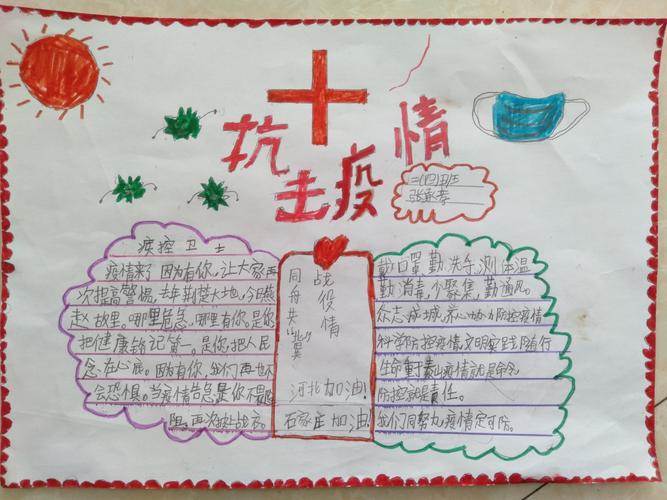 抗击疫情
二(四)班
张承孝
疾控卫士
疫情来了因为有你,让大家再
次提高警惕,去年荆楚大地,今日燕
赵故里。哪里危急,哪里有你。是你
把健康铭记第一。是你,把人民
念在心底。因为有你,我们再也不
会恐惧。当疫情告急是你不畏艰
阻,再次披上战衣。
战役情
同舟共"北"冀
河北加油!
石家庄加油!
戴口罩,勤洗手,测体温
勤消毒,少聚集,勤通风。
众志成城,齐心协力防控疫情
科学防控疫情,文明实践随行
生命重于泰山疫情就是命令
防控就是责任。
我们同努力,疫情定可防。